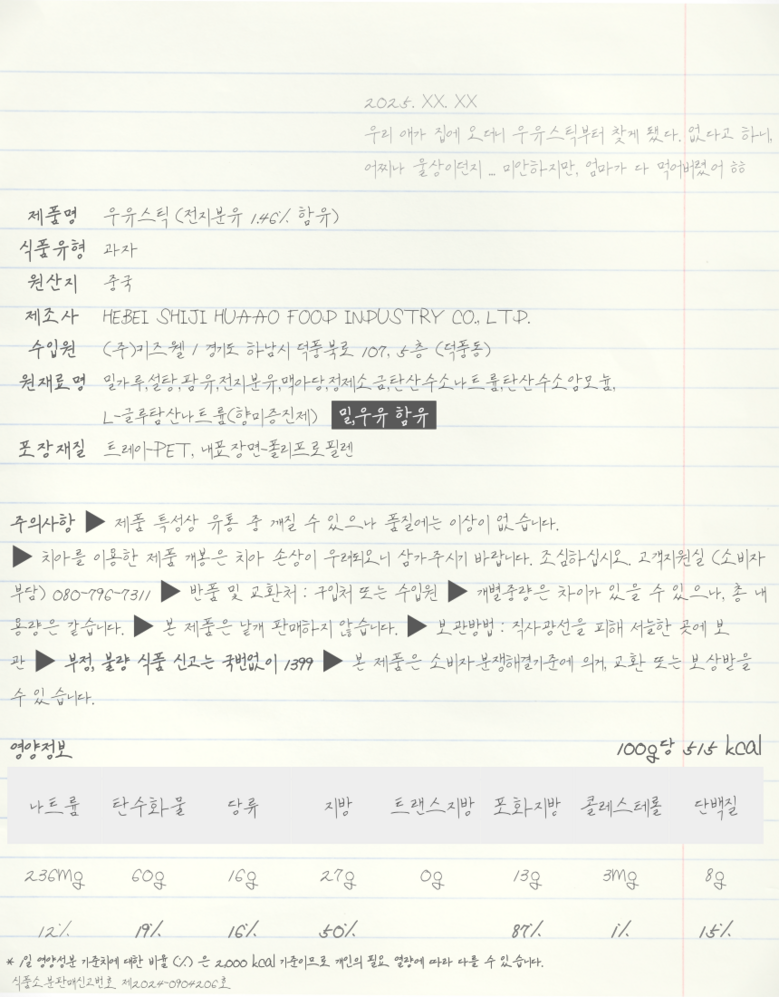 2025. XX. XX
우리 애가 집에 오더니 우유스틱부터 찾게 됐다. 없다고 하니,
어찌나 울상이던지 ... 미안하지만, 엄마가 다 먹어버렸어 ㅎㅎ
제품명 우유스틱 (전지분유 1.46% 함유)
식품유형 과자
원산지 중국
제조사 HEBEI SHIJI HUAAO FOOD INDUSTRY CO., LTD.
수입원 (주)키즈웰 / 경기도 하남시 덕풍북로 107, 5층 (덕풍동)
원재료명 밀가루,설탕,팜유,전지분유,맥아당,정제소금,탄산수소나트륨,탄산수소암모늄,
L-글루탐산나트륨(향미증진제) 밀,우유 함유
포장재질 트레이-PET, 내포장면-폴리프로필렌
주의사항 ▶ 제품 특성상 유통 중 깨질 수 있으나 품질에는 이상이 없습니다.
▶ 치아를 이용한 제품 개봉은 치아 손상이 우려되오니 삼가주시기 바랍니다. 조심하십시오. 고객지원실 (소비자
부담) 080-796-7311 ▶ 반품 및 교환처 : 구입처 또는 수입원 ▶ 개별중량은 차이가 있을 수 있으나, 총 내
용량은 같습니다. ▶ 본 제품은 낱개 판매하지 않습니다. ▶ 보관방법 : 직사광선을 피해 서늘한 곳에 보
관 ▶ 부정, 불량 식품 신고는 국번없이 1399 ▶ 본 제품은 소비자분쟁해결기준에 의거, 교환 또는 보상받을
수 있습니다.
영양정보 100g당 515 kcal
나트륨 탄수화물 당류 지방 트랜스지방 포화지방 콜레스테롤 단백질
236mg 60g 16g 27g 0g 13g 3mg 8g
12% 19% 16% 50% 87% 1% 15%
* 1일 영양성분 기준치에 대한 비율 (%) 은 2,000 kcal 기준이므로 개인의 필요 열량에 따라 다를 수 있습니다.
식품소분판매신고번호 제2024-0904206호